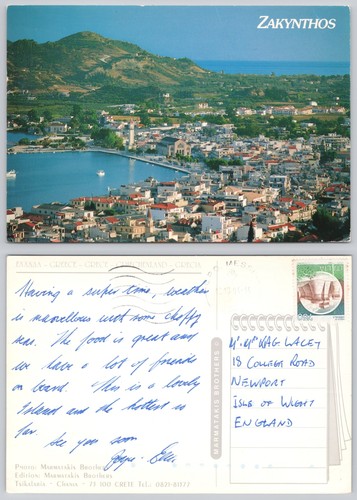 ZAKYNTHOS
ΕΛΛΑΔΑ - GREECE - GRÈCE - GRIECHENLAND - GRECIA
Having a super time, weather
is marvellous with some choppy
seas. The food is great and
we have a lot of friends
on board. This is a lovely
Island and the hottest so
far.
See you soon
MR. MRS KAG LACEY
18 COLLEGE ROAD
NEWPORT
ISLE OF WIGHT
ENGLAND
MARMATAKIS BROTHERS
Photo: Marmatakis Brothers
Edition, Marmatakis Brothers
Tsikalaria - Chania - 73 200 CRETE Tel.